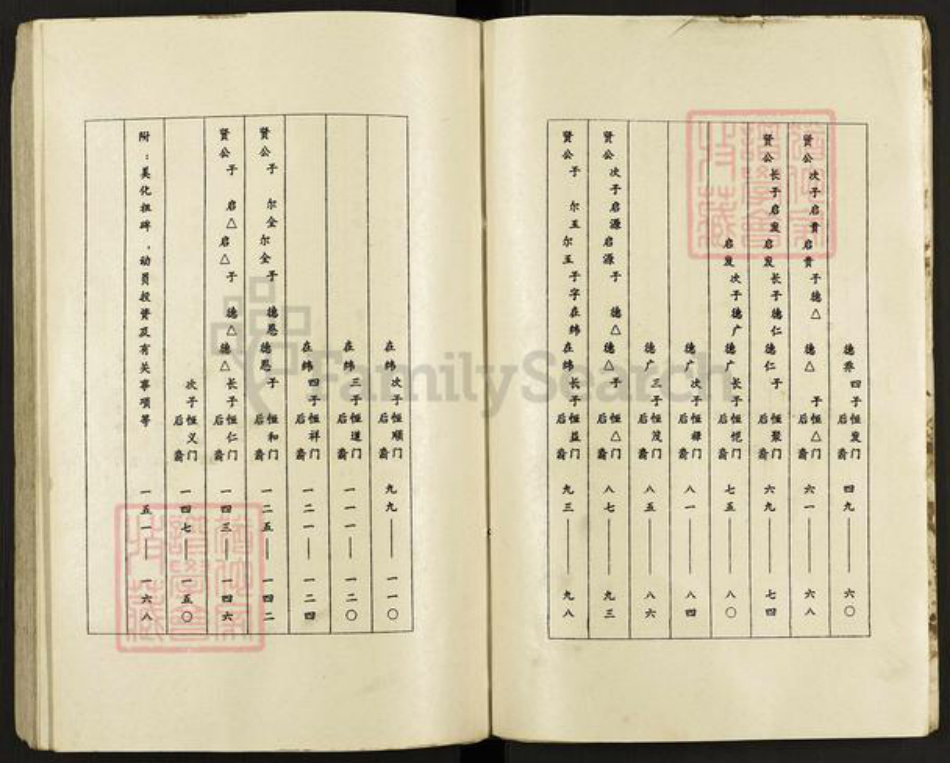 德养四子恒发门后裔 四九——六〇
贤公次子启贵启贵子德△德△子恒△门后裔 六一——六八
贤公长子启发启发长子德仁德仁子恒聚门后裔 六九——七四
启发次子德广德广长子恒恺门后裔 七五——八〇
德广次子恒禄门后裔 八一——八四
德广三子恒茂门后裔 八五——八六
贤公次子启源启源子德△德△子恒△门后裔 八七——九三
贤公子尔玉尔玉子字在纬在纬长子恒益门后裔 九三——九八
在纬次子恒顺门后裔 九九——一一〇
在纬三子恒道门后裔 一一一——一二〇
在纬四子恒祥门后裔 一二一——一二四
贤公子尔全尔全子德恩德恩子恒和门后裔 一二五——一四二
贤公子启△启△子德△德△长子恒仁门后裔 一四三——一四六
次子恒义门后裔 一四七——一五〇
附：美化祖碑，动员投资及有关事项等 一五一——一六八
FamilySearch